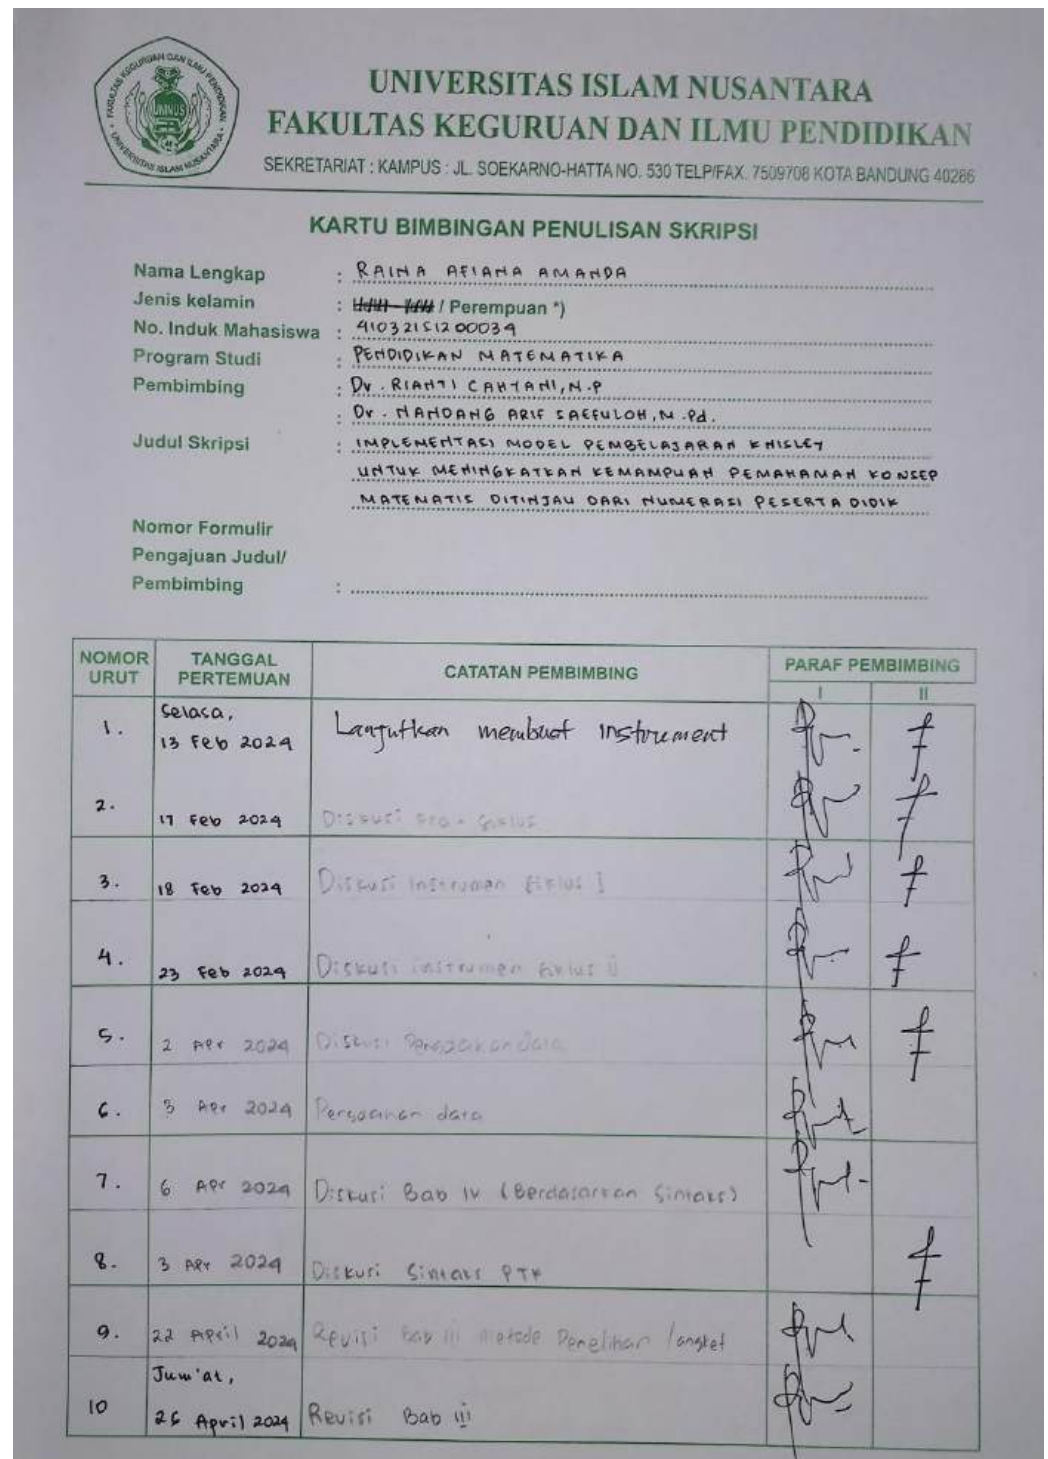 UNIVERSITAS ISLAM NUSANTARA
FAKULTAS KEGURUAN DAN ILMU PENDIDIKAN
SEKRETARIAT : KAMPUS : JL. SOEKARNO-HATTA NO. 530 TELP/FAX. 7509708 KOTA BANDUNG 40286
FAKULTAS KEGURUAN DAN ILMU PENDIDIKAN
UNIVERSITAS ISLAM NUSANTARA
UNINUS
KARTU BIMBINGAN PENULISAN SKRIPSI
Nama Lengkap : RAINA AFIANA AMANDA
Jenis kelamin : / Perempuan *)
No. Induk Mahasiswa : 41032151200034
Program Studi : PENDIDIKAN MATEMATIKA
Pembimbing : Dr. RIANTI CAHYANI, M.P
: Dr. NANDANG ARIF SAEFULOH, M.Pd.
Judul Skripsi : IMPLEMENTASI MODEL PEMBELAJARAN KNISLEY
UNTUK MENINGKATKAN KEMAMPUAN PEMAHAMAN KONSEP
MATEMATIS DITINJAU DARI NUMERASI PESERTA DIDIK
Nomor Formulir
Pengajuan Judul/
Pembimbing :
NOMOR URUT TANGGAL PERTEMUAN CATATAN PEMBIMBING PARAF PEMBIMBING
I II
1. Selasa, 13 Feb 2024 Lanjutkan membuat instrument
2. 17 Feb 2024 Diskusi Pra-Siklus
3. 18 Feb 2024 Diskusi Instrumen Siklus I
4. 23 Feb 2024 Diskusi instrumen Siklus ii
5. 2 Apr 2024 Diskusi data
6. 3 Apr 2024 data
7. 6 Apr 2024 Diskusi Bab IV (Berdasarkan Sintaks)
8. 3 Apr 2024 Diskusi Sintaks PTK
9. 22 April 2024 Revisi Bab iii Metode Penelitian /angket
10 Jum'at, 26 April 2024 Revisi Bab iii